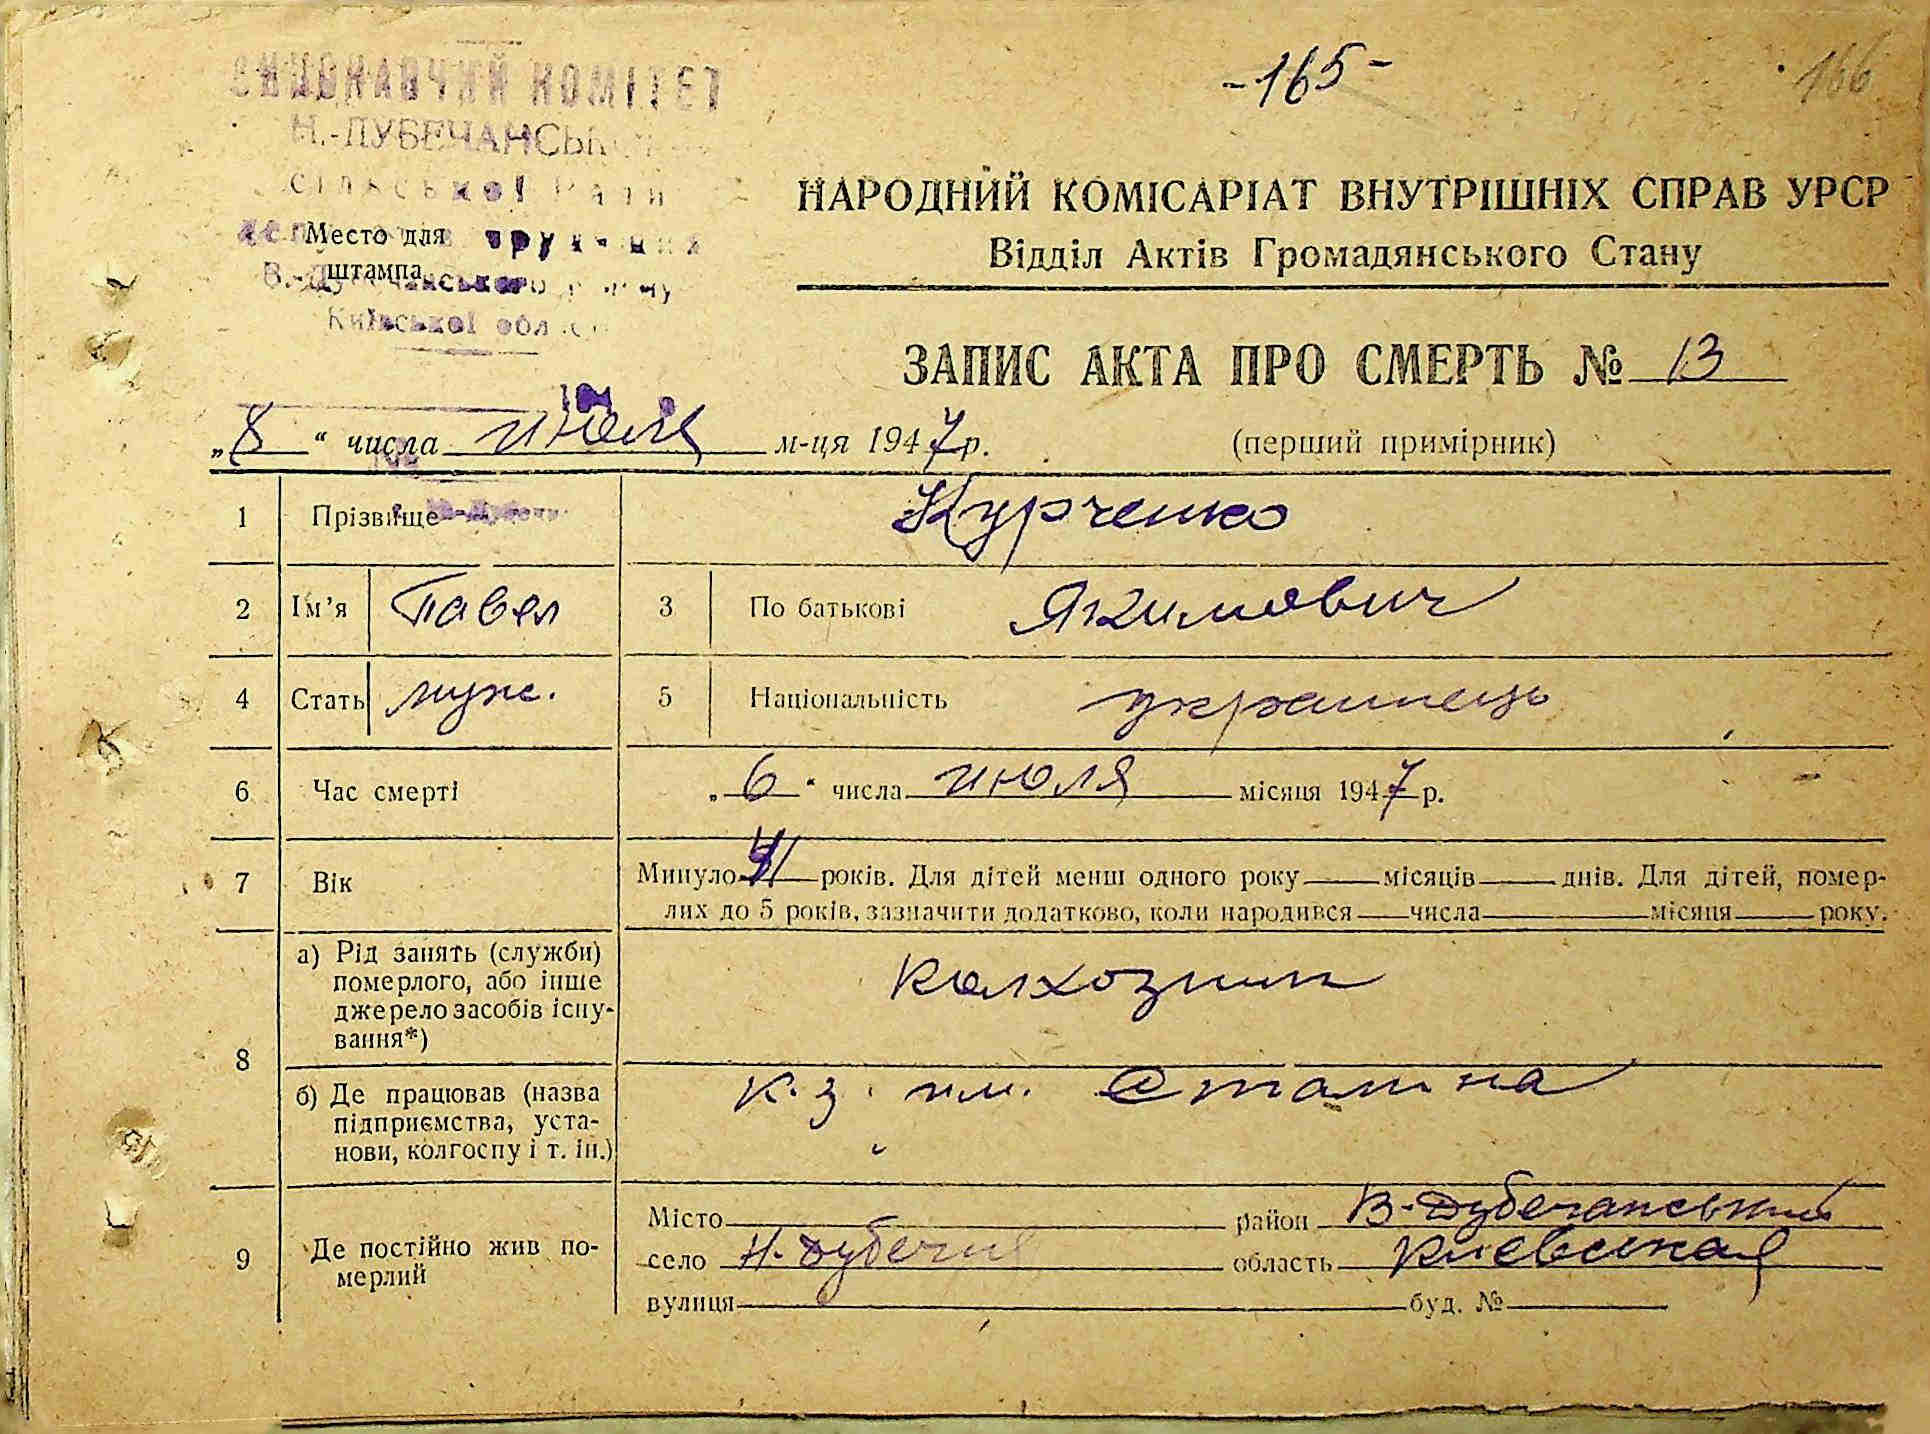 ВИКОНАВЧИЙ КОМІТЕТ
Н.-ДУБЕЧАНСЬКОЇ
сільської Ради
В.-Дубечанського
Київської обл
-165-
166
НАРОДНИЙ КОМІСАРІАТ ВНУТРІШНІХ СПРАВ УРСР
Відділ Актів Громадянського Стану
Место для
штампа
ЗАПИС АКТА ПРО СМЕРТЬ № 13
„8“ числа июля м-ця 1947 р. (перший примірник)
1 Прізвище Курченко
2 Ім'я Павел 3 По батькові Якимович
4 Стать муж. 5 Національність украинець
6 Час смерті „6“ числа июля місяця 1947 р.
7 Вік Минуло років. Для дітей менш одного року місяців днів. Для дітей, помер-
лих до 5 років, зазначити додатково, коли народився числа місяця року.
8 а) Рід занять (служби)
померлого, або інше
джерело засобів існу-
вання*)
колхозник
б) Де працював (назва
підприємства, уста-
нови, колгоспу і т. ін.)
к.з. им. Сталина
9 Де постійно жив по-
мерлий
Місто район В-Дубечанський
село Н-Дубечня область Киевская
вулиця буд. №